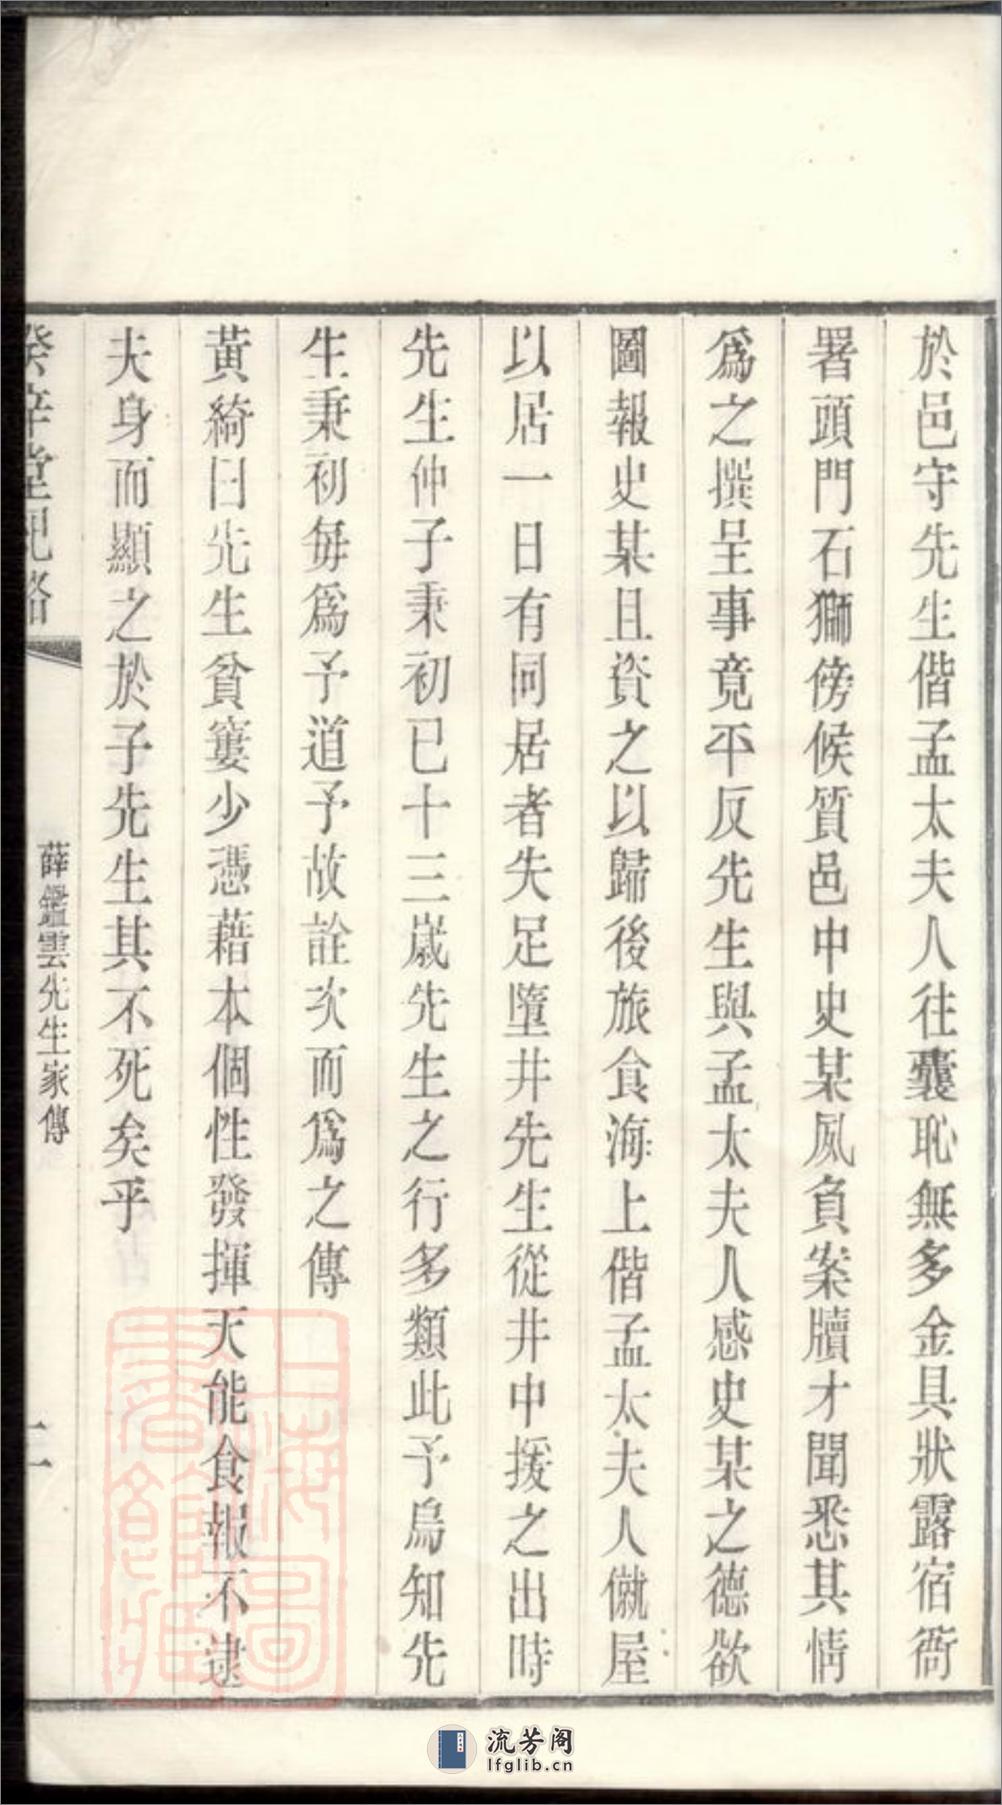 於邑守先生偕孟太夫人往囊恥無多金具狀露宿衙
署頭門石獅傍候質邑中史某夙負案牘才聞悉其情
爲之撰呈事竟平反先生與孟太夫人感史某之德欲
圖報史某且資之以歸後旅食海上偕孟太夫人僦屋
以居一日有同居者失足墮井先生從井中援之出時
先生仲子秉初已十三歲先生之行多類此予烏知先
生秉初每爲予道予故詮次而爲之傳
黃綺曰先生貧窶少憑藉本個性發揮天能食報不逮
夫身而顯之於子先生其不死矣乎
堂記略
薛鑑雲先生家傳
二
上海圖書館藏
流芳阁
lfglib.cn